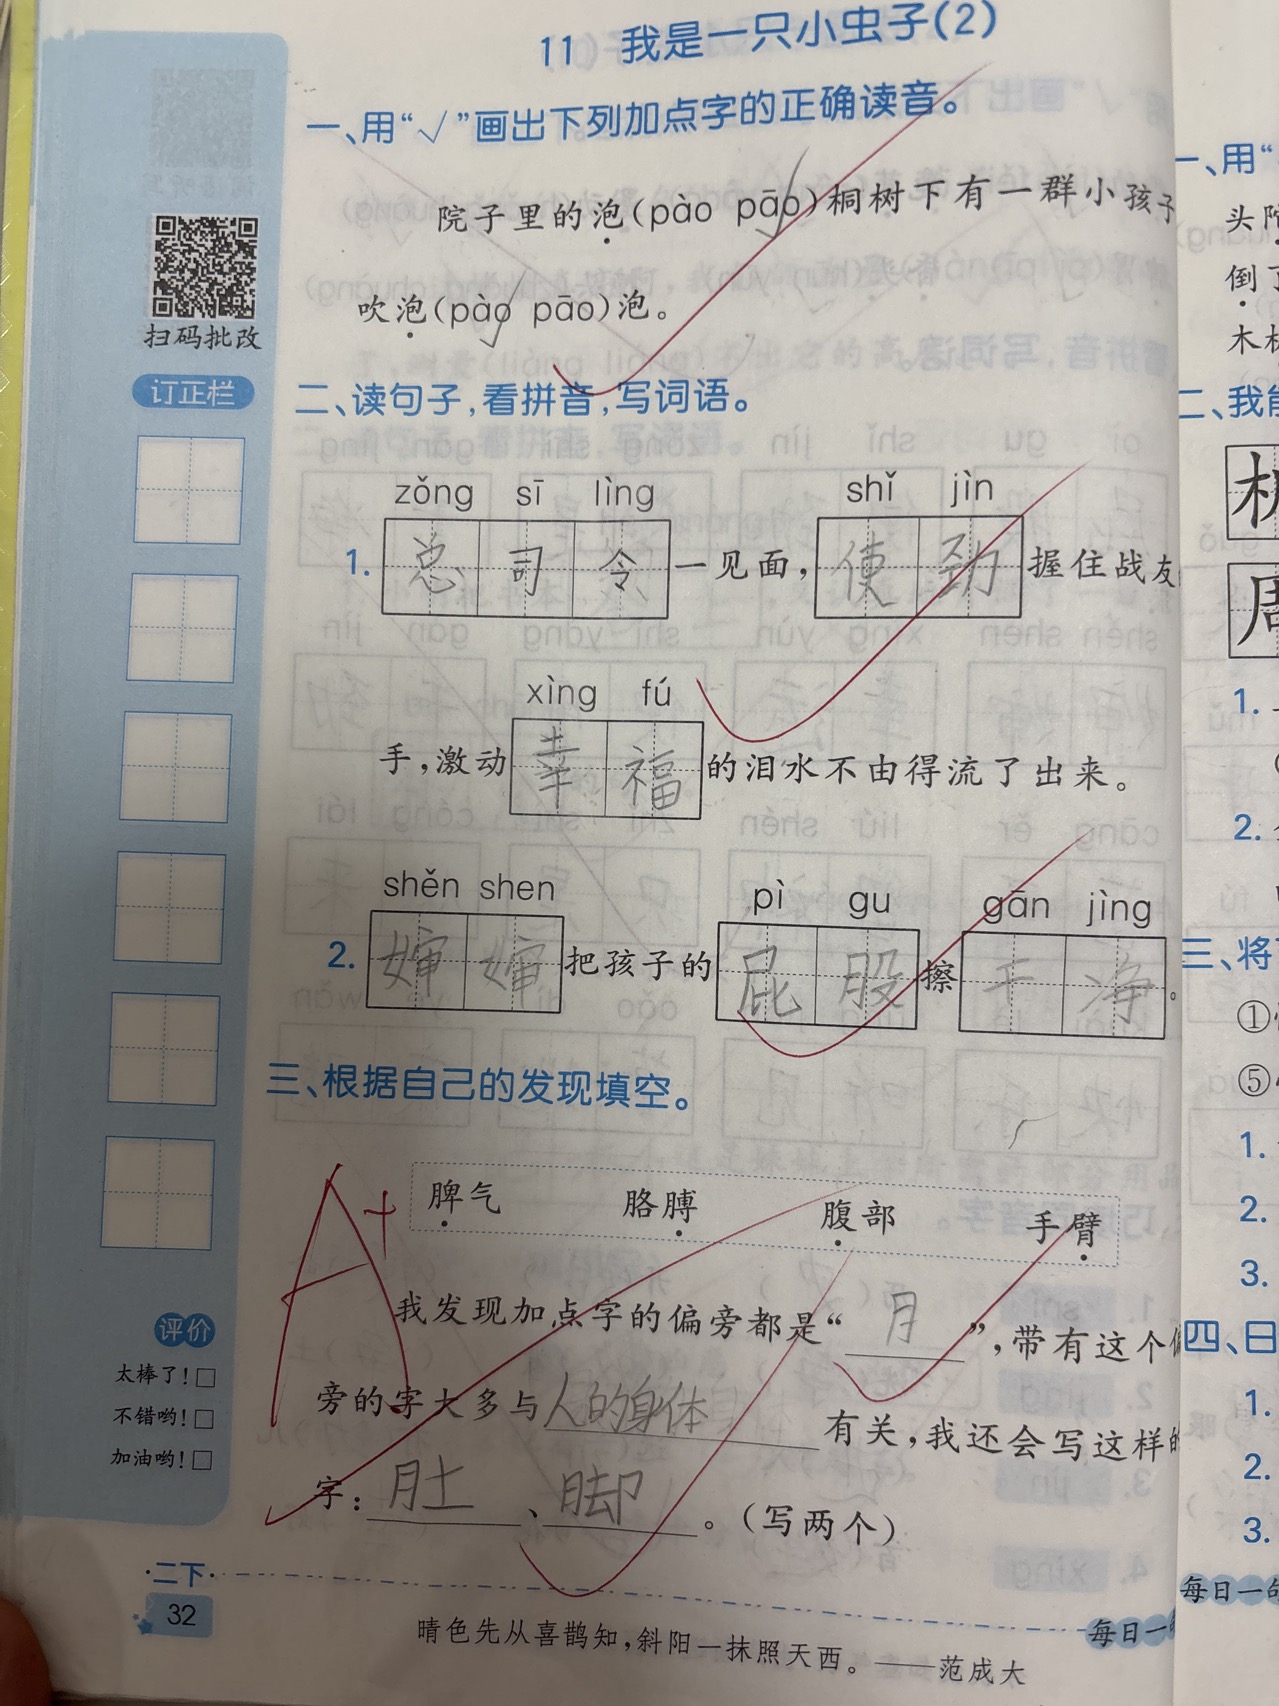 11 我是一只小虫子(2)
一、用“√”画出下列加点字的正确读音。
院子里的泡(pào pāo)桐树下有一群小孩子
吹泡(pào pāo)泡。
扫码批改
订正栏
二、读句子,看拼音,写词语。
zǒng sī lìng shǐ jìn
1. 总司令一见面,使劲握住战友
xìng fú
手,激动幸福的泪水不由得流了出来。
shěn shen pì gu gān jìng
2. 婶婶把孩子的屁股擦干净。
三、根据自己的发现填空。
A+
脾气 胳膊 腹部 手臂
我发现加点字的偏旁都是“月”,带有这个偏
旁的字大多与人的身体有关,我还会写这样的
字:肚、脚。(写两个)
评价
太棒了!□
不错哟!□
加油哟!□
·二下·
32
晴色先从喜鹊知,斜阳一抹照天西。——范成大
每日一句
一、用“
头
倒了
木
二、我能
1.
2.
三、将
①
⑤
1.
2.
3.
四、日
1.
2.
3.
每日一句